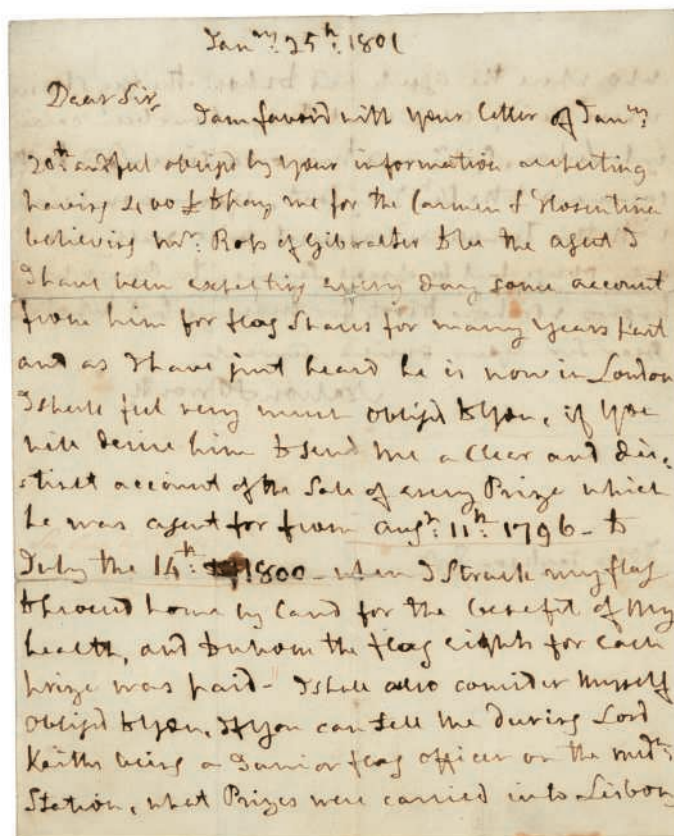 Jan^ry: 25^th: 1801
Dear Sir, I am favord with your letter of Jan^ry:
20^th: and feel obliged by your information respecting
having 400£ to pay me for the Carmen & Florentina
believing Mr: Ross of Gibralter to be the agent I
I have been expecting every day some account
from him for flag Shares for many years past
and as I have just heard he is now in London
I shall feel very much obliged to you, if you
will desire him to send me a Clear and dis-
-tinct account of the Sale of every Prize which
he was agent for from aug^st: 11^th: 1796 - to
July the 14^th: 1800 - when I Struck my flag
to proceed home by land for the benefit of my
health, and to whom the flag eighths for each
prize was paid - I shall also consider myself
obliged to you, If you can tell me during Lord
Keiths being a Junior flag officer on the med^n:
Station, what Prizes were carried into Lisbon